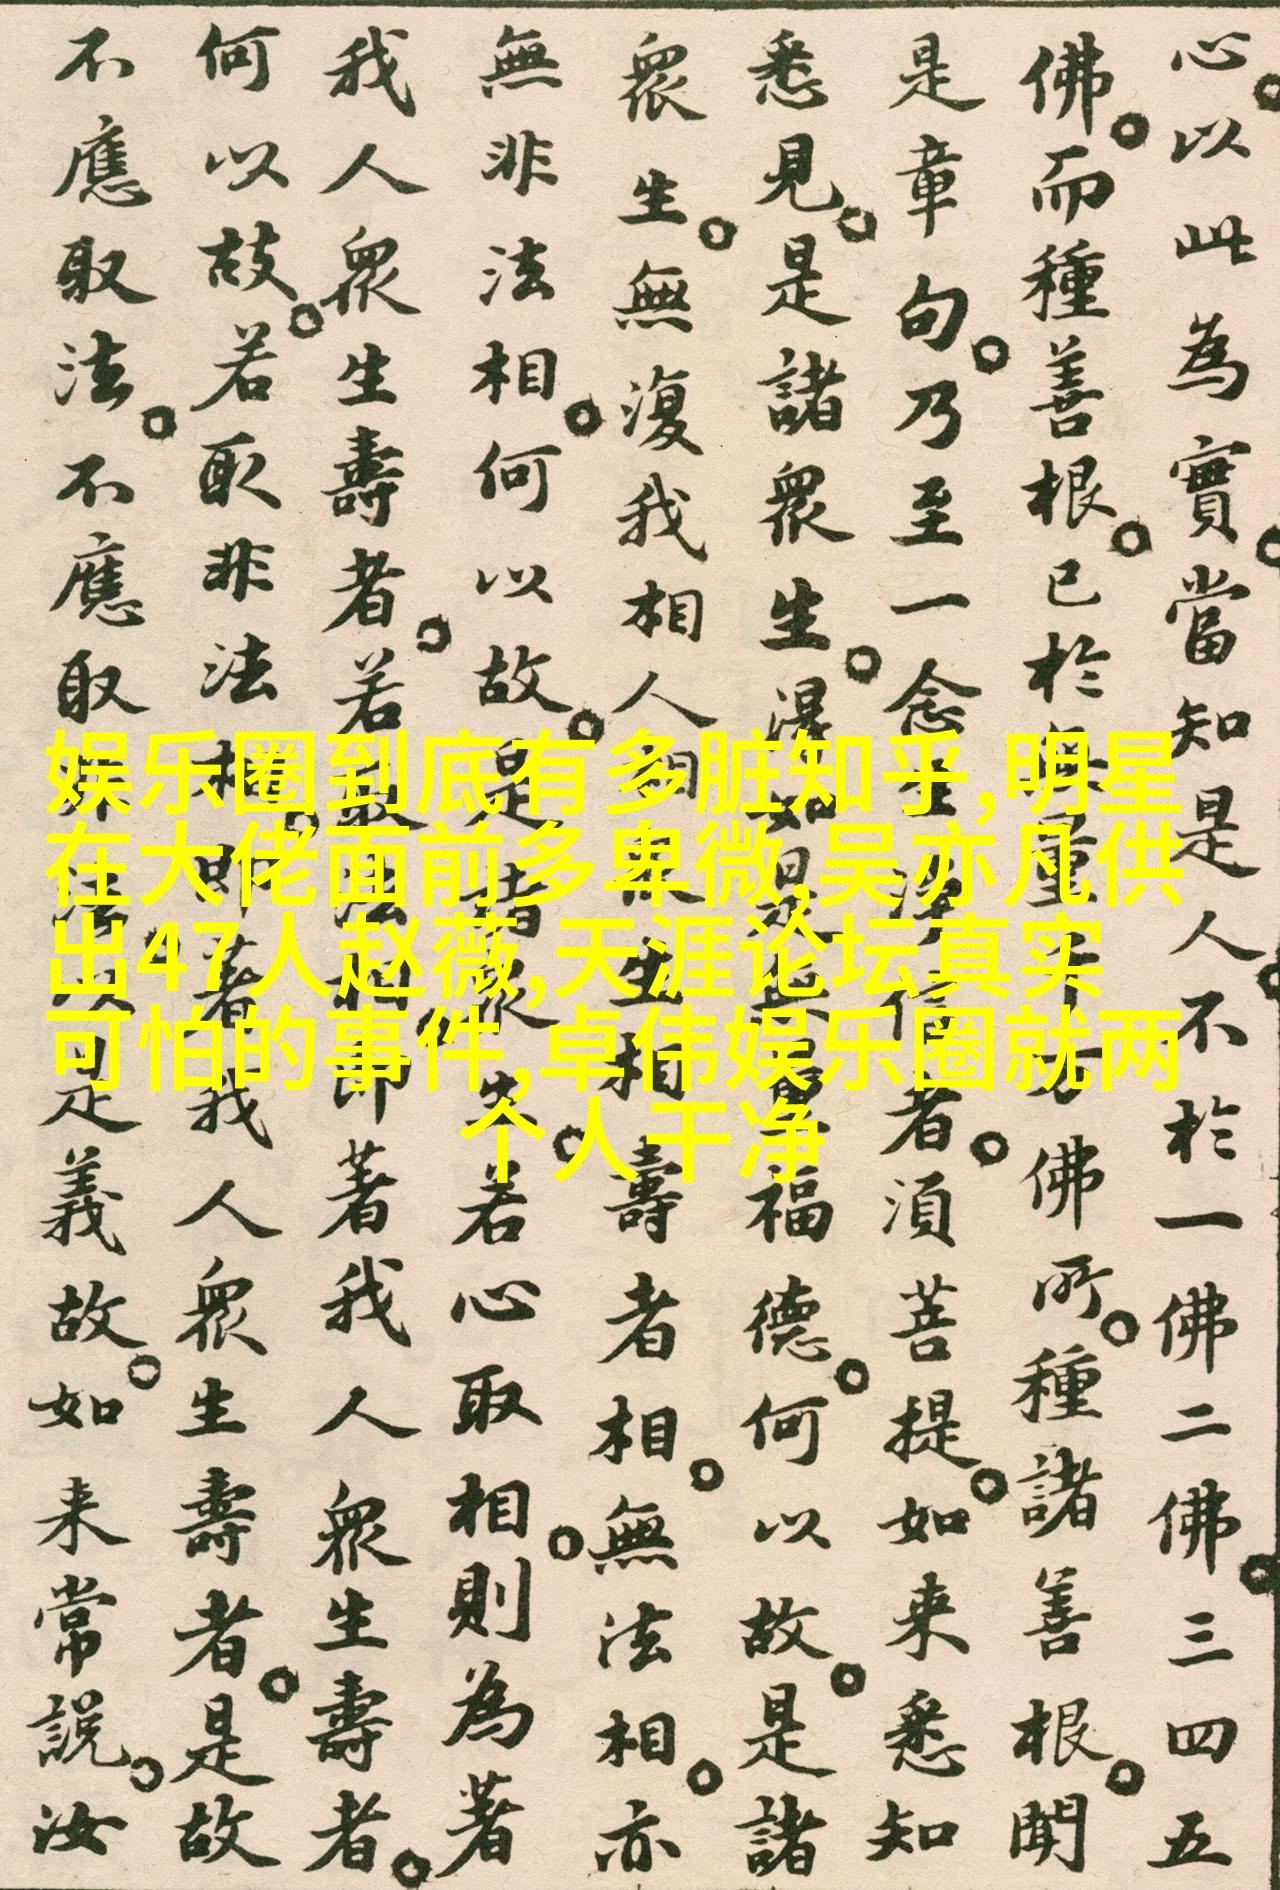 心。以此為實。當知是人。不於一佛二佛。三四五
佛。而種善根。已於無量千万佛所。種諸善根。聞
是章句。乃至一念生淨信者。須菩提。如来悉知
悉見。是諸衆生。淂如是無量福德。何以故。是諸
衆生。無復我相人相衆生相壽者相。無法相。亦
無非法相。何以故。是諸衆生。若心取相。則為著
我人衆生壽者。若取法相。即著我人衆生壽者。
何以故。若取非法相。即著我人衆生壽者。是故
不應取法。不應取非法。以是義故。如来常説。汝
娱乐圈到底有多脏知乎,明星
在大佬面前多卑微,吴亦凡供
出47人赵薇,天涯论坛真实
可怕的事件,卓伟娱乐圈就两
个人干净